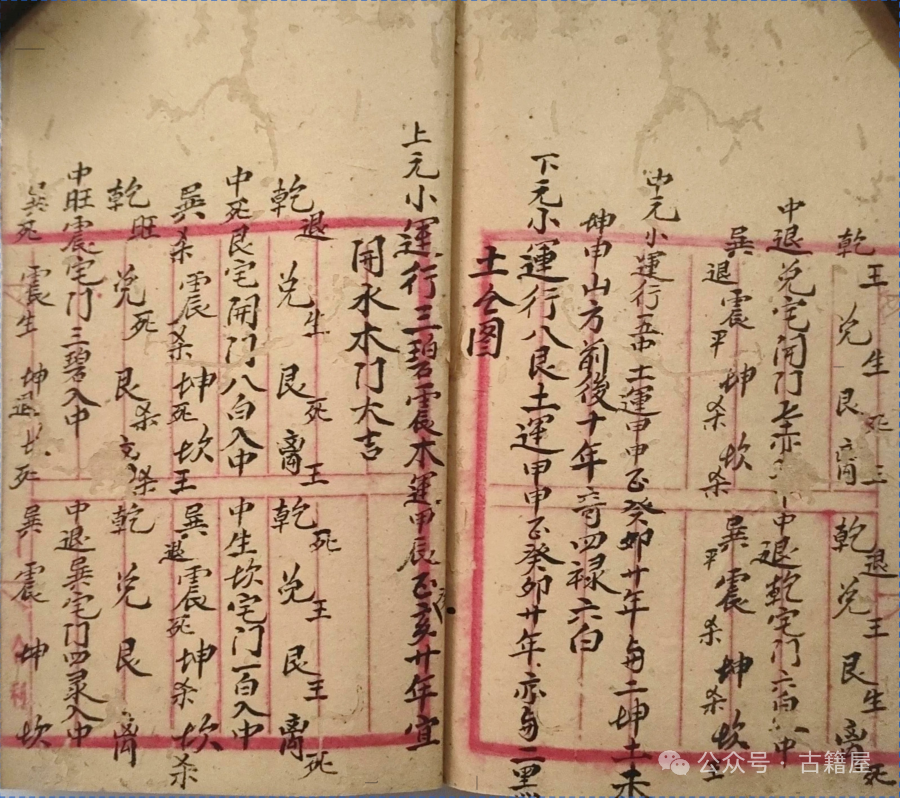 乾王 兑生 艮死 离三 乾退 兑王 艮生 离死
中退兑宅開門七赤 中退乾宅門六白 中
巽退 震平 坤杀 坎杀 巽平 震杀 坤杀 坎王
中元小運行五中土運甲申至癸卯廿年与二坤土未
坤申山方前後十年寄四禄六白
下元小運行八艮土運甲申至癸卯廿年亦与二黑
土仝图
上元小運行三碧震木運甲辰至亥廿年宜
開水木门大吉
乾退 兑生 艮死 离王 乾死 兑王 艮王 离死
中死艮宅開门八白入中 中生坎宅门一白入中
巽杀 震杀 坤死 坎王 巽退 震死 坤杀 坎杀
乾旺 兑死 艮杀 离杀 乾 兑 艮 离
中旺震宅门三碧入中 中退巽宅门四录入中
巽死 震生 坤退 坎死 巽 震 坤 坎
公众号·古籍屋